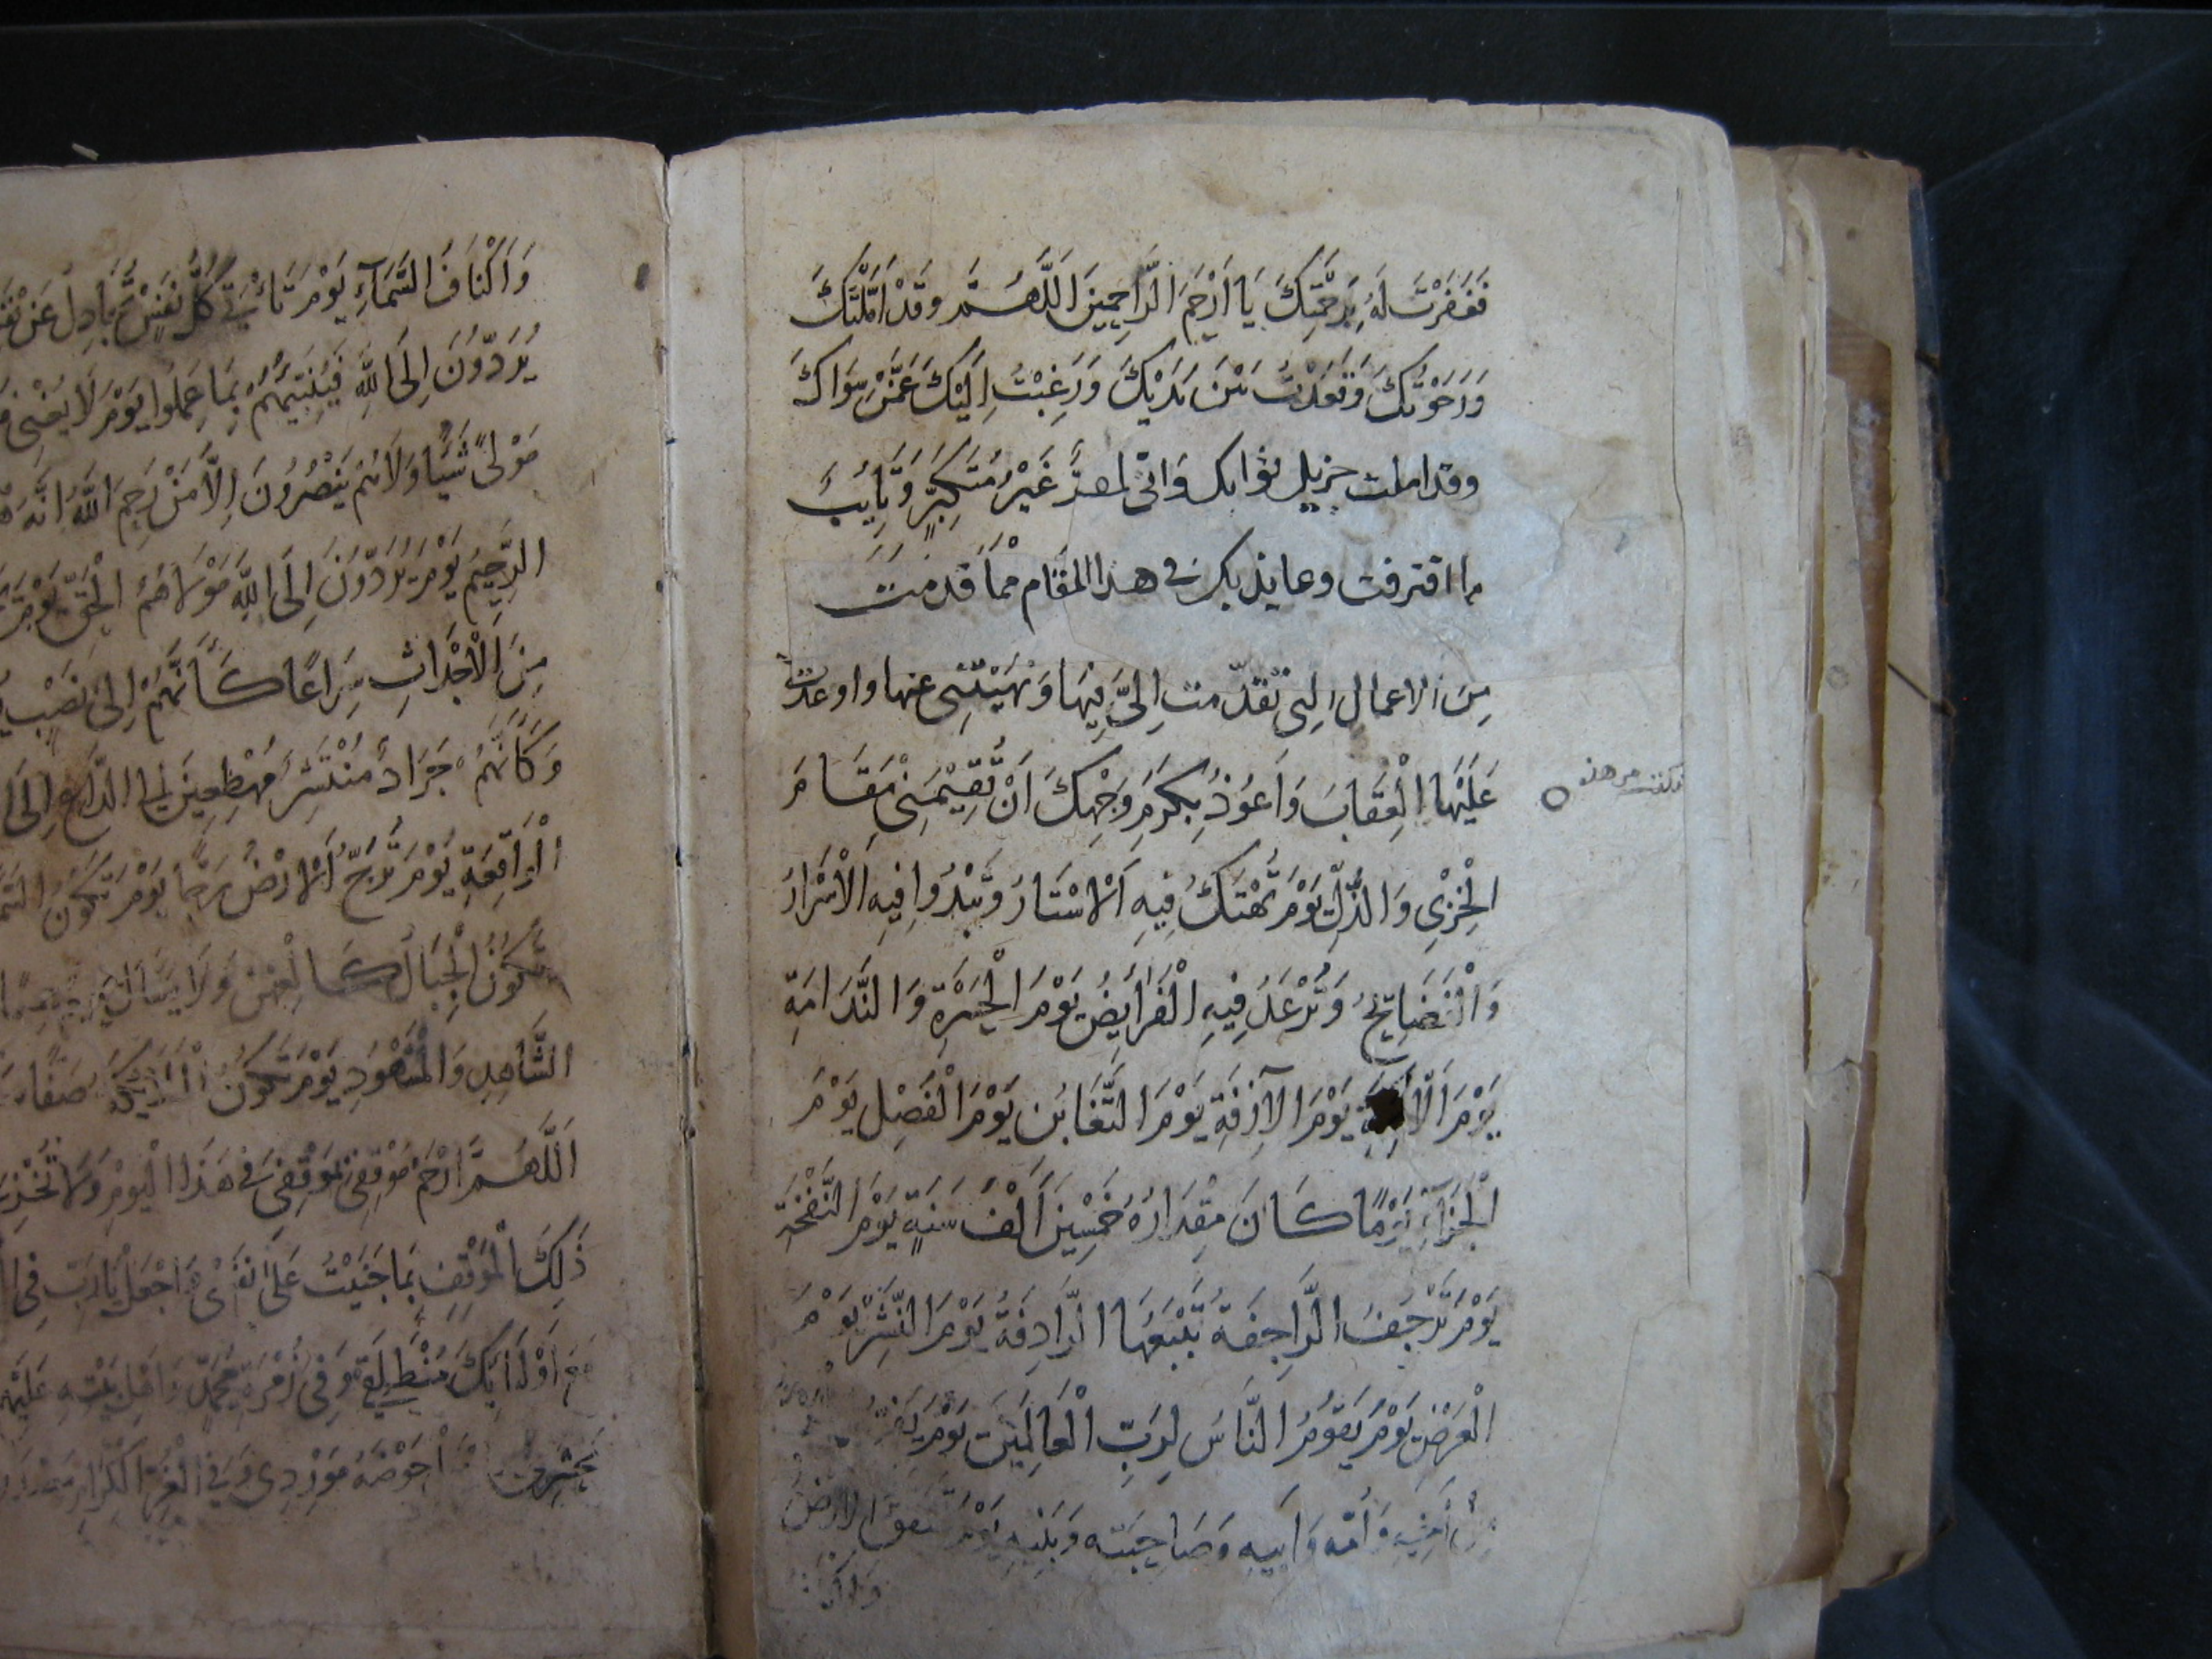 فَغَفَرْتَ لَهُ بِرَحْمَتِكَ يَا اَرْحَمَ الرَّاحِمِينَ اَللَّهُمَّ وَقَدْ اَمَّلْتُكَ
وَرَجَوْتُكَ وَقَعَدْتُ بَيْنَ يَدَيْكَ وَرَغِبْتُ اِلَيْكَ عَمَّنْ سِوَاكَ
وقد املت جزيل ثوابك وَانّى لمقرّ غَيْرُ مُتَكَبِّرٍ وَتَايُبَ
مما اقترفت وعايذ بك فى هذا المقام مِمَّا قَدمت
مِنَ الاعمال التِى تقدّمت اِلىَّ فِيهَا وَنَهَيْتَنِى عنها واوعدت
عَلَيْهَا الْعِقَابَ وَاَعُوذُ بِكَرَمِ وَجْهِكَ اَنْ تُقِيْمَنِىْ مَقَامَ
الْخِزْىِ وَالذُّلِّ يَوْمَ تُهْتَكُ فِيهِ اَلْاسْتَارُ وَتَبْدُوا فِيهِ الْاَسْرَارُ
وَالْفَضَايِحُ وَتُرْعَدُ فِيهِ الْفَرَايِضُ يَوْمَ الْحَسْرَةِ وَالنَّدَامَةِ
يَوْمَ يَوْمَ الْآزِفَةِ يَوْمَ التَّغَابُنِ يَوْمَ الْفَصْلِ يَوْمَ
الْجَزَآءِ يَوْمًا كَانَ مِقْدَارُهُ خَمْسِيْنَ اَلْفَ سَنَةٍ يَوْمَ النَّفْخَةِ
يَوْمَ تَرْجُفُ الرَّاجِفَةُ تَتْبَعُهَا الرَّادِفَةُ يَوْمَ النَّشْرِ يَوْمَ
الْعَرْضِ يَوْمَ يَقُوْمُ النَّاسُ لِرَبِّ الْعَالَمِيْنَ يَوْمَ
وَاُمّه وَاَبِيهِ وَصَاحِبَتِه وَبَنِيْهِ يَوْمَ تشقق الارضُ
وَاكْنا
وَاَكْنَافُ السَّمَآءِ يَوْمَ تَاْتِىْ كُلُّ نَفْسٍ تُجَادِلُ عَنْ
يُرَدّوُنَ اِلَى اللهِ فَيُنَبِّئُهُمْ بِمَا عَمِلُوا يَوْمَ لَا يُغْنِى
مَوْلىً شَيْئًا وَلَا هُمْ يُنْصَرُونَ اِلَّا مَنْ رَحِمَ اللهُ اِنَّهُ
الرَّحِيمُ يَوْمَ يُرَدّوُنَ اِلَى اللهِ مَوْلَاهُمُ الْحَقِّ يَوْمَ
مِنَ الْاَجْدَاثِ سِرَاعًا كَاَنَّهُمْ اِلىٰ نُصُبٍ
وَكَاَنَّهُمْ جَرَادٌ مُنْتَشِرٌ مُهْطِعِيْنَ اِلَى الدَّاعِ اِلَى
الْوَاقِعَةِ يَوْمَ تُرَجُّ اَلْارْضُ رَجًّا يَوْمَ تَكُوْنُ
تَكُوْنُ الْجِبَالُ كَالْعِهْنِ وَلَا يَسْاَلُ حَمِيْمٌ
الشَّاهِدِ وَالْمَشْهُودِ يَوْمَ تَكُوْنُ الْمَلَايِكَةُ صَفًّا
اَللَّهُمَّ ارْحَمْ مَوْقِفِىْ فِى هَذَا الْيَوْمِ وَلَا تُخْزِنِى
ذَلِكَ الْمَوْقِفِ بِمَا جَنَيْتُ عَلَى نَفْسِىْ وَاجْعَلْ يَارَبِّ فِى
اَوْلِيَايِكَ مُنْطَلَقِى وَفِى زُمْرَةِ مُحَمَّدٍ وَاَهْلِ بَيْتِهِ عَلَيْهِمُ
مَحْشَرِىْ حَوْضَهُ مَوْرِدِى وَفِى الْغُرِّ الْكِرَامِ